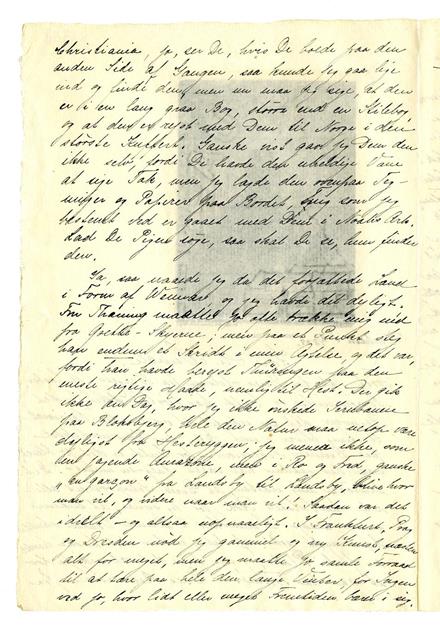 Christiania, ja, ser De, hvis De boede paa den
anden Side af Gangen, saa kunde jeg gaa lige
ind og finde den, men nu maa det sige, at den
er i en lang graa Bog, større end en Stilebog,
og at den er rejst med Dem til Norge i den
største Kuffert. Ganske vist gav jeg Dem den
ikke selv, fordi De havde den uheldige Vane
at sige Tak, men jeg lagde den ovenpaa Teg-
ninger og Papirer paa Bordet, som jeg
bestemt ved er gaaet med Dem i Noahs Ark.
Lad De Pigen søge, saa skal De se, hun finder
den.
Ja, saa naaede jeg da det forjættede Land
i Form af Weimar, og jeg havde det dejligt.
maatte jo ofte trække mig ned
fra Goethe-Skyerne, men paa et Punkt steg
han endnu et Skridt i min Agtelse, og det var,
fordi han havde berejst Thüringen paa den
mest rigtige Maade, nemlig til Hest. Der gik
ikke en Dag, hvor jeg ikke ønskede Jernbanen
paa Bloksbjerg, hele den Natur maa netop være
dejligst fra Hesteryggen; jeg mener ikke, som
den jagende Amazone, men i Ro og Fred, ganske
"en garçon" fra Landsby til Landsby, blive hvor
man vil, og videre naar man vil! Saadan var det
idealt - og altsaa uopnaaeligt. I Frankfurt, Prag
og Dresden nød jeg gammel og ny Kunst, næsten
alt for meget, men jeg maatte jo samle Forraad
til at tære paa hele den lange Vinter, for Ingen
ved jo, hvor lidt eller meget Fremtiden bærer i sig.